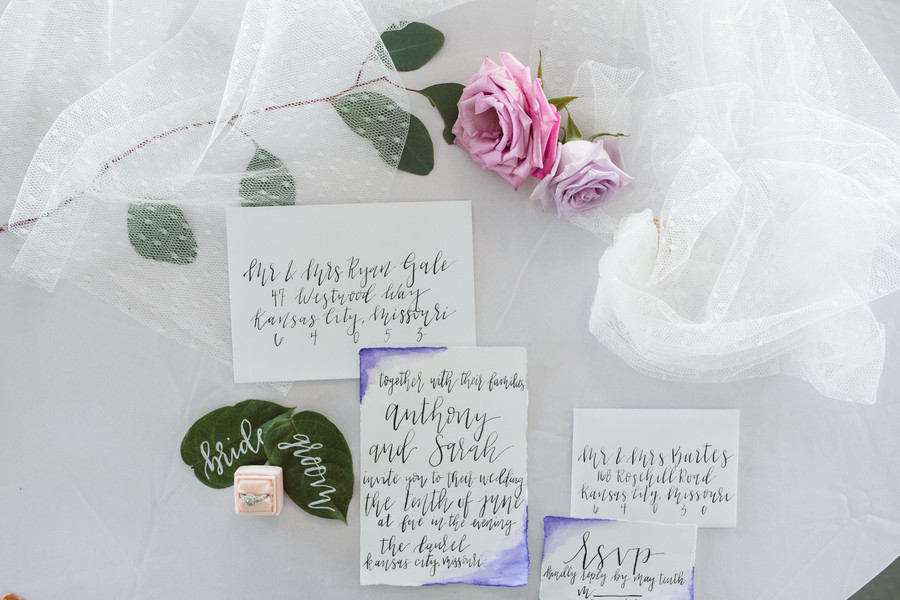 Mr & Mrs Ryan Gale
47 Westwood Way
Kansas City, Missouri
6 4 0 5 3
together with their families
anthony
and Sarah
invite you to their wedding
the tenth of june
at five in the evening
the laurel
kansas city, missouri
bride
groom
Mr & Mrs Burtes
160 Rosehill Road
Kansas City, Missouri
6 4 0 5 0
rsvp
kindly reply by may tenth
m